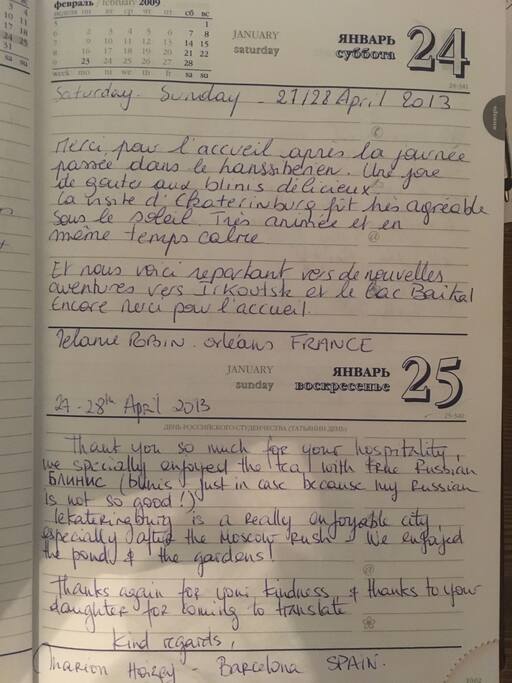 февраль / february 2009
неделя пн вт ср чт пт сб вс
5 1
6 2 3 4 5 6 7 8
7 9 10 11 12 13 14 15
8 16 17 18 19 20 21 22
9 23 24 25 26 27 28
week mo tu we th fr sa su
JANUARY
saturday
ЯНВАРЬ
суббота
24
Saturday - Sunday - 27/28 April 2013
Merci pour l'accueil après la journée
passée dans le transsiberien. Une joie
de gouter aux blinis délicieux
la visite d'Ekaterinburg fût très agréable
sous le soleil. Très animée et en
même temps calme
Et nous voici repartant vers de nouvelles
aventures vers Irkoutsk et le Lac Baïkal
Encore merci pour l'accueil.
Mélanie ROBIN. Orléans FRANCE
JANUARY
sunday
ЯНВАРЬ
воскресенье
25
27-28th April 2013
ДЕНЬ РОССИЙСКОГО СТУДЕНЧЕСТВА (ТАТЬЯНИН ДЕНЬ)
Thank you so much for your hospitality,
we specially enjoyed the tea with true Russian
БЛИНИС (blinis just in case because my Russian
is not so good!)
Iekaterinburg is a really enjoyable city,
especially after the Moscow rush. We enjoyed
the pond & the gardens!
Thanks again for your kindness, & thanks to your
daughter for coming to translate
Kind regards,
Marion - Barcelona SPAIN.